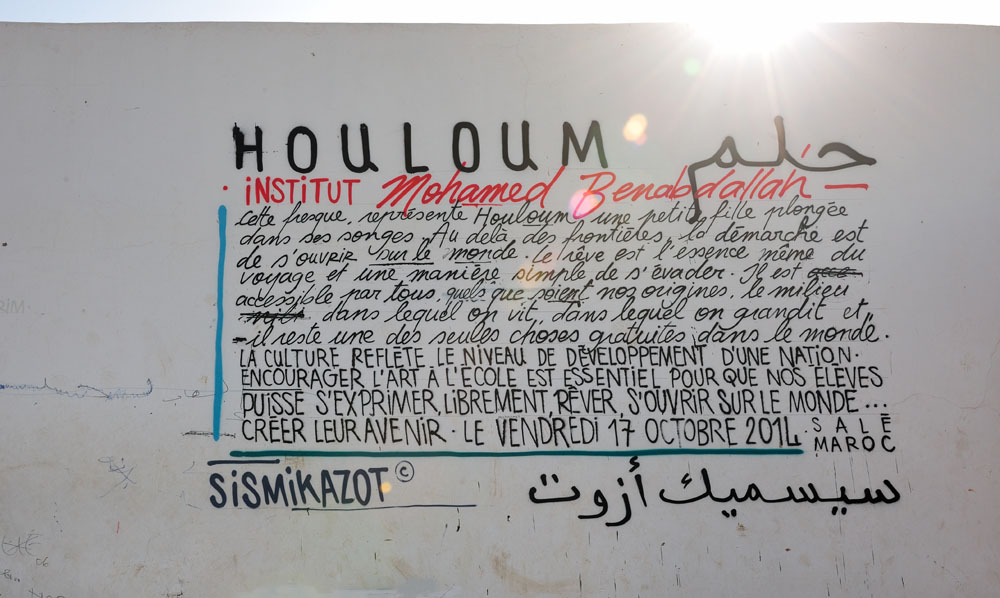 HOULOUM حلم
· iNSTiTUT Mohamed Benabdallah —
Cette fresque, représente Houloum, une petite fille plongée
dans ses songes. Au delà, des frontières, la démarche est
de s'ouvrir sur le monde. Le rêve est l'éssence même du
voyage et une manière simple de s'évader. Il est
accessible par tous, quels que soient nos origines, le milieu
dans lequel on vit, dans lequel on grandit et
il reste une des seules choses gratuites dans le monde.
LA CULTURE REFLÈTE LE NIVEAU DE DÉVELOPPEMENT D'UNE NATION.
ENCOURAGER L'ART À L'ÉCOLE EST ESSENTIEL POUR QUE NOS ÉLÈVES
PUISSE S'EXPRIMER, LIBREMENT, RÊVER, S'OUVRIR SUR LE MONDE ...
CRÉER LEUR AVENIR · LE VENDREDi 17 OCTOBRE 2014 . SALÉ
MAROC
SiSMiKAZOT © سيسميك أزوت